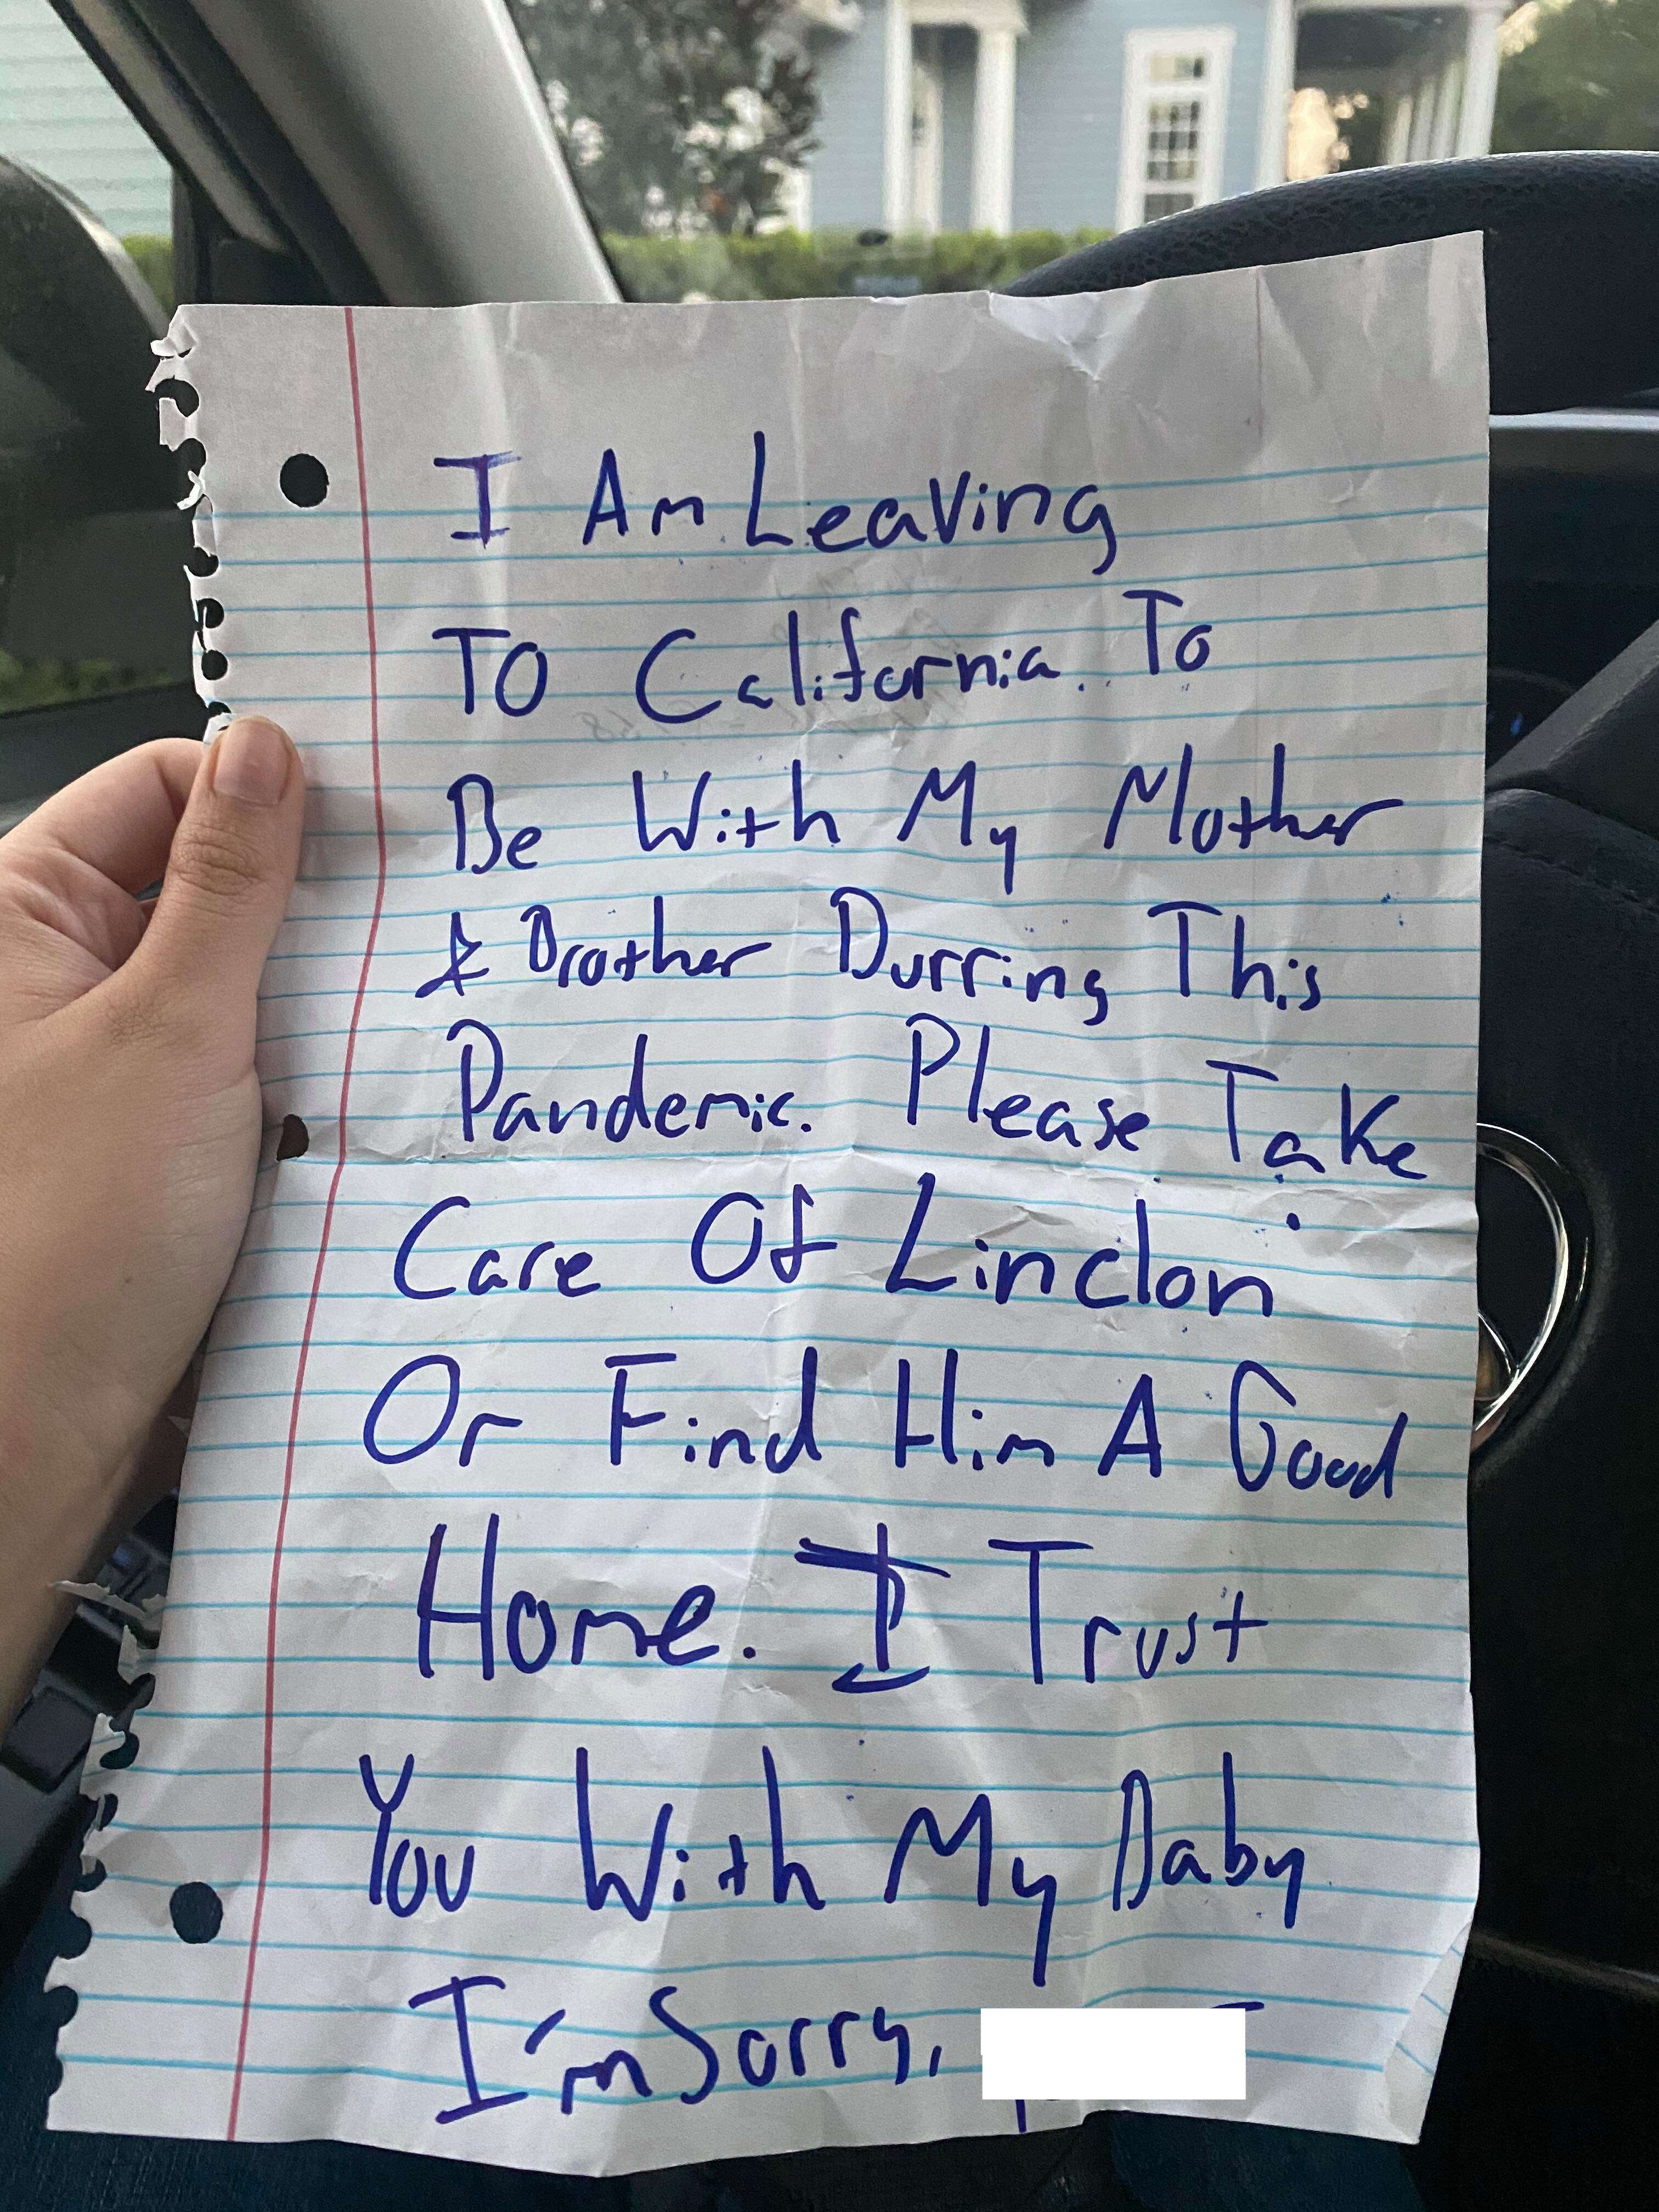 I Am Leaving
TO California. To
Be With My Mother
& Brother Durring This
Pandemic. Please Take
Care Of Linclon
Or Find Him A Good
Home. I Trust
You With My Baby
I'm Sorry,